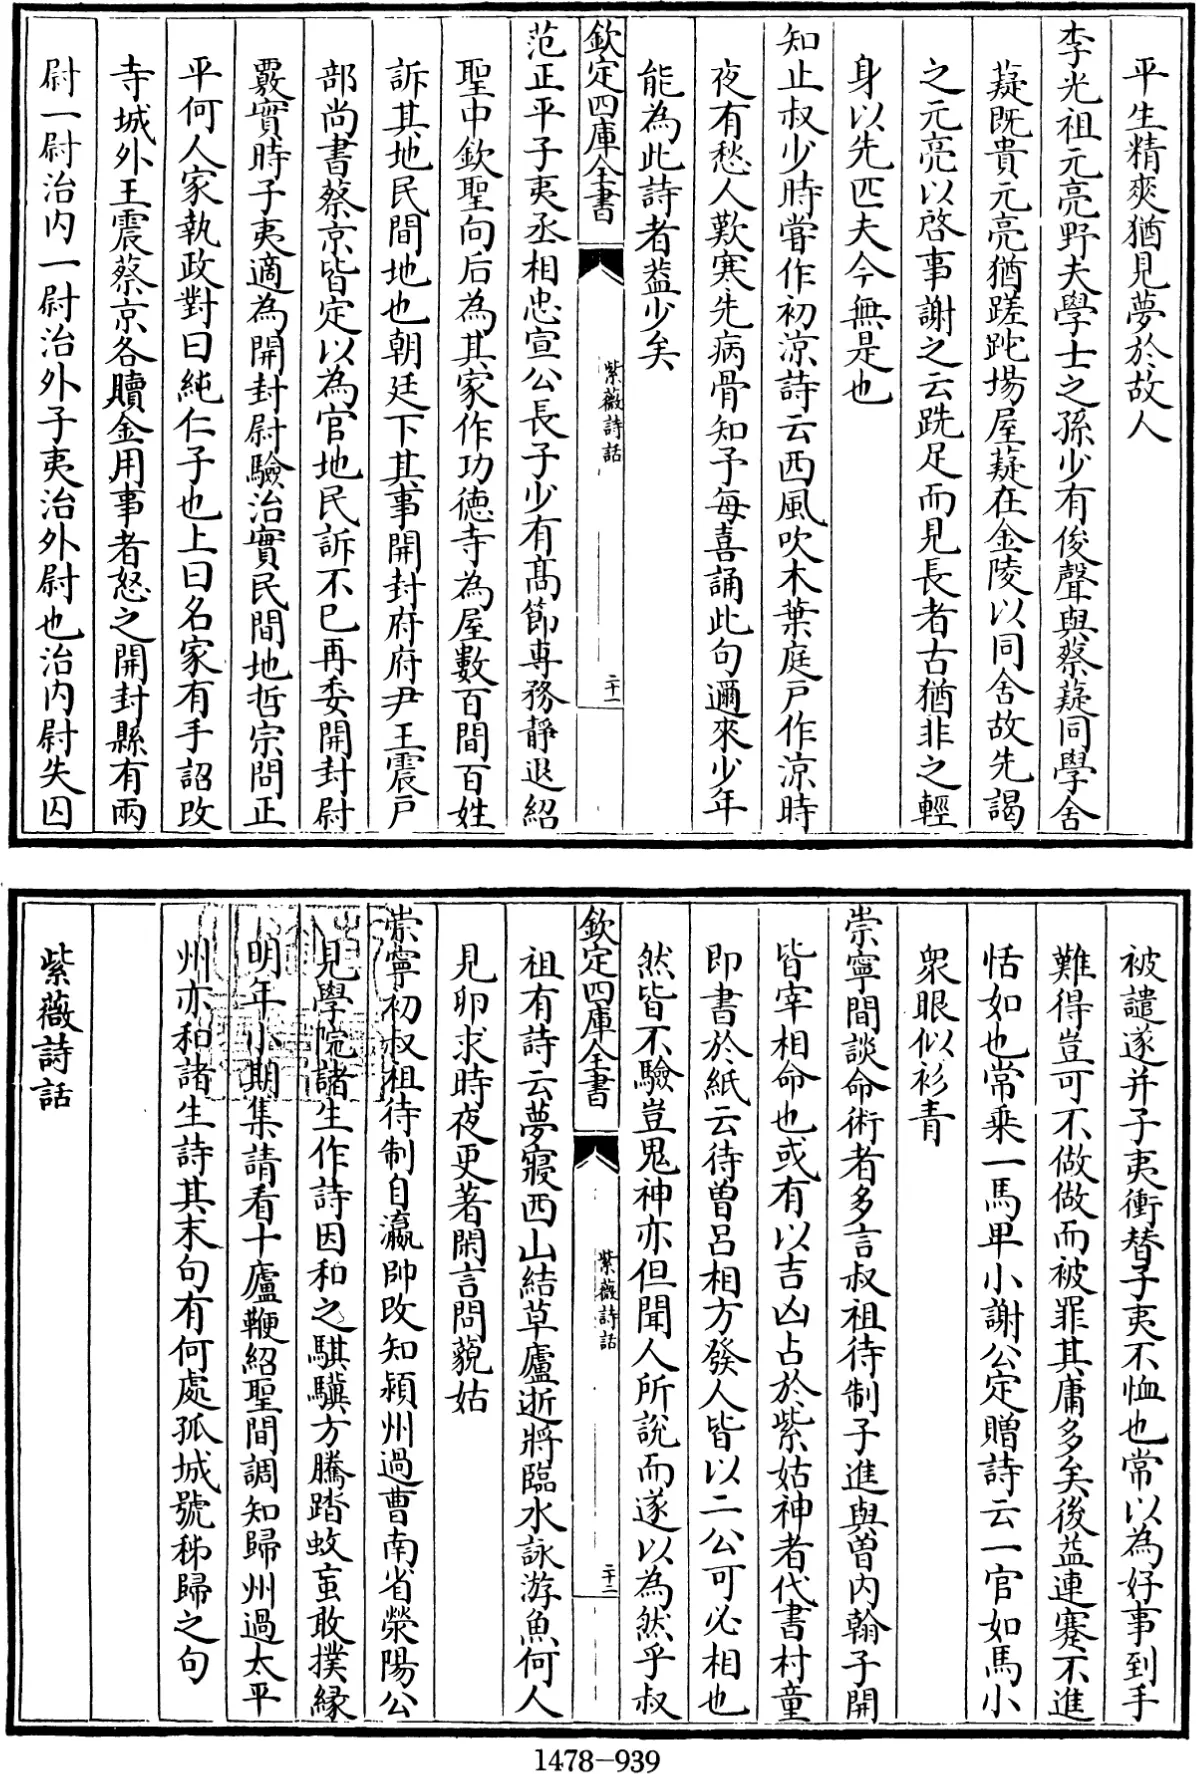 平生精爽猶見夢於故人
李光祖元亮野夫學士之孫少有俊聲與蔡薿同學舍
薿既貴元亮猶蹉跎場屋薿在金陵以同舍故先謁
之元亮以啓事謝之云跣足而見長者古猶非之輕
身以先匹夫今無是也
知止叔少時嘗作初涼詩云西風吹木葉庭戸作涼時
夜有愁人歎寒先病骨知予每喜誦此句邇來少年
能為此詩者葢少矣
欽定四庫全書
紫薇詩話
二十一
范正平子夷丞相忠宣公長子少有髙節專務靜退紹
聖中欽聖向后為其家作功徳寺為屋數百間百姓
訴其地民間地也朝廷下其事開封府府尹王震戸
部尚書蔡京皆定以為官地民訴不已再委開封尉
覈實時子夷適為開封尉驗治實民間地哲宗問正
平何人家執政對曰純仁子也上曰名家有手詔改
寺城外王震蔡京各贖金用事者怒之開封縣有兩
尉一尉治内一尉治外子夷治外尉也治内尉失囚
被譴遂并子夷衝替子夷不恤也常以為好事到手
難得豈可不做做而被罪其庸多矣後益連蹇不進
恬如也常乘一馬卑小謝公定贈詩云一官如馬小
衆眼似衫青
崇寧間談命術者多言叔祖待制子進與曽内翰子開
皆宰相命也或有以吉凶占於紫姑神者代書村童
即書於紙云待曽吕相方發人皆以二公可必相也
然皆不驗豈鬼神亦但聞人所說而遂以為然乎叔
欽定四庫全書
紫薇詩話
二十二
祖有詩云夢寢西山結草廬逝將臨水詠游魚何人
見卵求時夜更著閑言問藐姑
崇寧初叔祖待制自瀛帥改知潁州過曹南省滎陽公
見學院諸生作詩因和之騏驥方騰踏蚊䖟敢撲縁
明年小期集請看十廬鞭紹聖間調知歸州過太平
州亦和諸生詩其末句有何處孤城號秭歸之句
紫薇詩話
1478-939